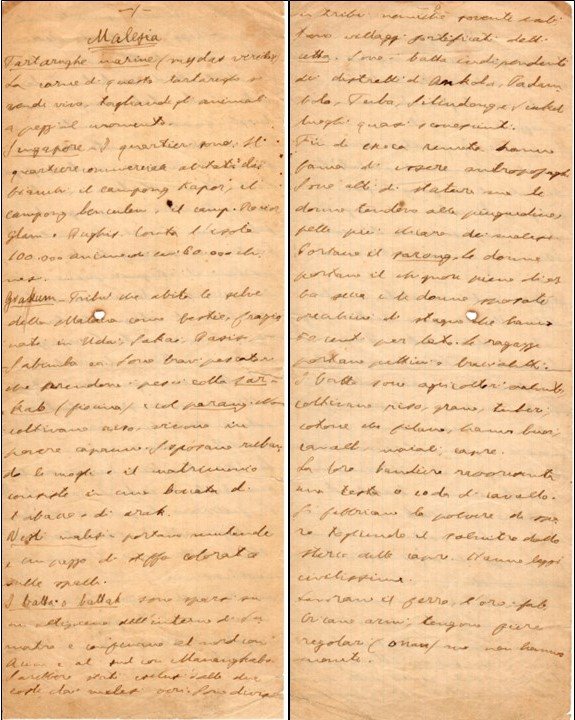 -1-
Malesia
Tartarughe marine (mydas virides)
La carne di queste tartarughe si
vende viva, tagliandogli animali
a pezzi al momento.
Singapore - I quartieri sono: Il
quartiere commerciale abitati dai
bianchi, il campong Kapor, il
campong benculen, il camp.
Glam e Bughis. Conta l'isola
100.000 anime di cui 60.000 chi-
nesi.
- Tribù che abita le selve
della Malacca come bestie, frazio
nata in Udai, Sakai, Rasir
Sabimba ecc. Sono bravi pescatori
che prendono i pesci colla
(fiocina) e col parang. Non
coltivano riso, vivono in
povere capanne. Si sposano ruban
do le mogli e il matrimonio
consiste in una boccata di
tabacco e di arak.
Vesti malesi - portano mutande
e un pezzo di stoffa colorata
sulle spalle.
I batta o battak sono sparsi su
un altipiano dell'interno di Su
matra e confinano al nord con
Accen e al sud con Manangkabo.
Sarebbero stati esclusi dalle due
coste dai malesi ecc. Sono divisi
in tribù nemiche sovente abi
tano villaggi fortificati detti
cotta. Sono i batta indipendenti
dei distretti di Ankola, Padam
bola, Toba, Silindong e Sinkel
luoghi quasi sconosciuti.
Fin da epoca remota hanno
fama di essere antropofaghi
Sono alti di statura ma le
donne tendono alla pinguedine,
pelle più chiara dei malesi
Portano il sarong, le donne
portano il chignon pieno di er
ba secca e le donne sposate
orecchini di stagno che hanno
50 cent. per lato. Le ragazze
portano pettini e braccialetti.
I batta sono agricoltori valenti
coltivano riso, grano, tuberi,
cotone che filano, hanno buoi,
cavalli, maiali, capre.
La loro bandiera rappresenta
una testa o coda di cavallo.
Si fabbricano la polvere da spa
ro togliendo il salnitro dallo
sterco delle capre. Hanno leggi
civilissime.
Lavorano il ferro, l'oro, fab
bricano armi, tengono fiere
regolari (onan) ma non hanno
monete.